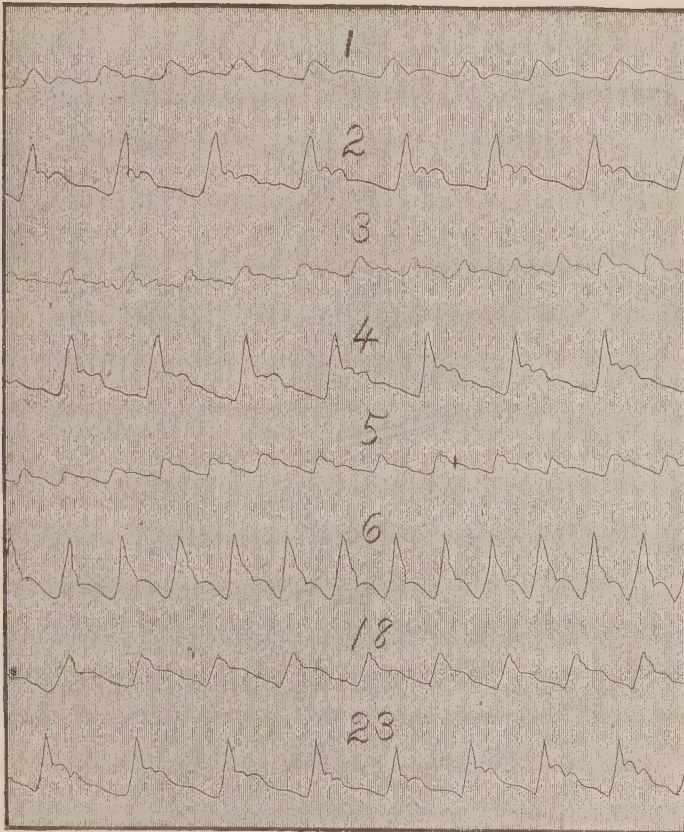 1
2
3
4
5
6
18
23